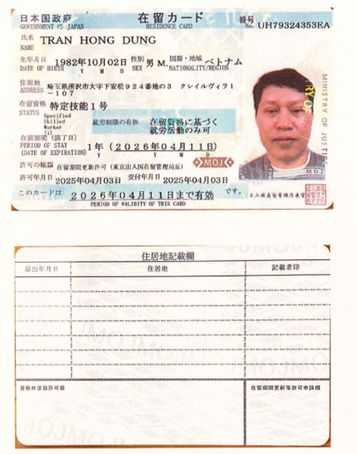 日本国政府 在留カード 番号 UH79324353EA
GOVERNMENT OF JAPAN RESIDENCE CARD
氏名 TRAN HONG DUNG
NAME
生年月日 1982年10月02日 性別 男 M. 国籍・地域 ベトナム
DATE OF BIRTH Y M D SEX NATIONALITY/REGION
住居地 埼玉県所沢市大字下安松924番地の3 クレイルヴィラ1
ADDRESS －107
在留資格 特定技能1号
STATUS Specified
Skilled
Worker
(i)
就労制限の有無 在留資格に基づく
就労活動のみ可
在留期間(満了日) 1年(2026年04月11日)
PERIOD OF STAY
(DATE OF EXPIRATION) Y M D
許可の種類 在留期間更新許可(東京出入国在留管理局長)
MOJ
許可年月日 2025年04月03日 交付年月日 2025年04月03日
このカードは 2026年04月11日まで有効 です。
PERIOD OF VALIDITY OF THIS CARD
MINISTRY OF JUSTICE
MOJ
住居地記載欄
届出年月日 住居地 記載者印
資格外活動許可欄 在留期間更新等許可申請欄